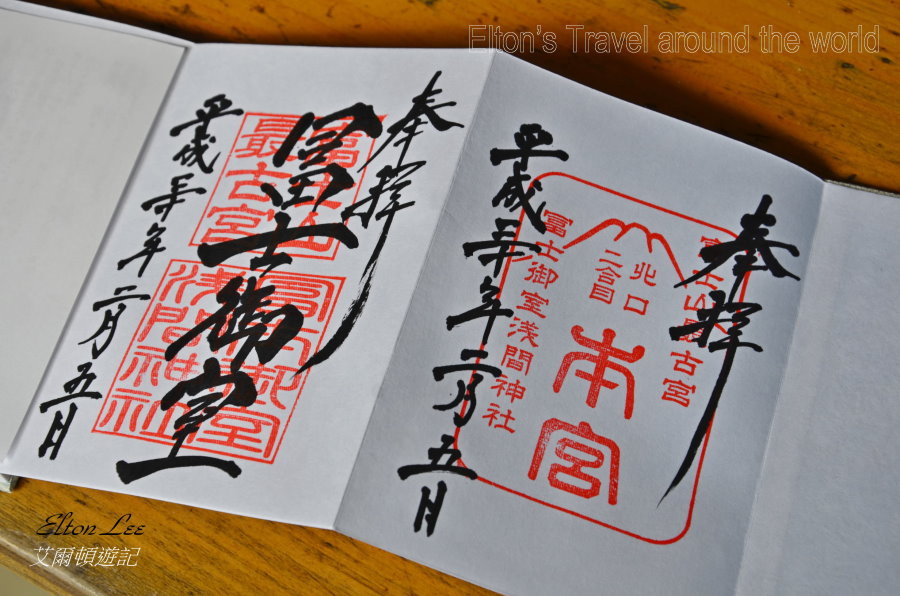 Elton's Travel around the world
奉拝
富士山最古宮
北口
二合目
本宮
富士御室浅間神社
平成三十年二月五日
奉拝
冨士御室
富士山
最古宮
冨士御室
浅間神社
平成三十年二月五日
Elton Lee
艾爾頓遊記